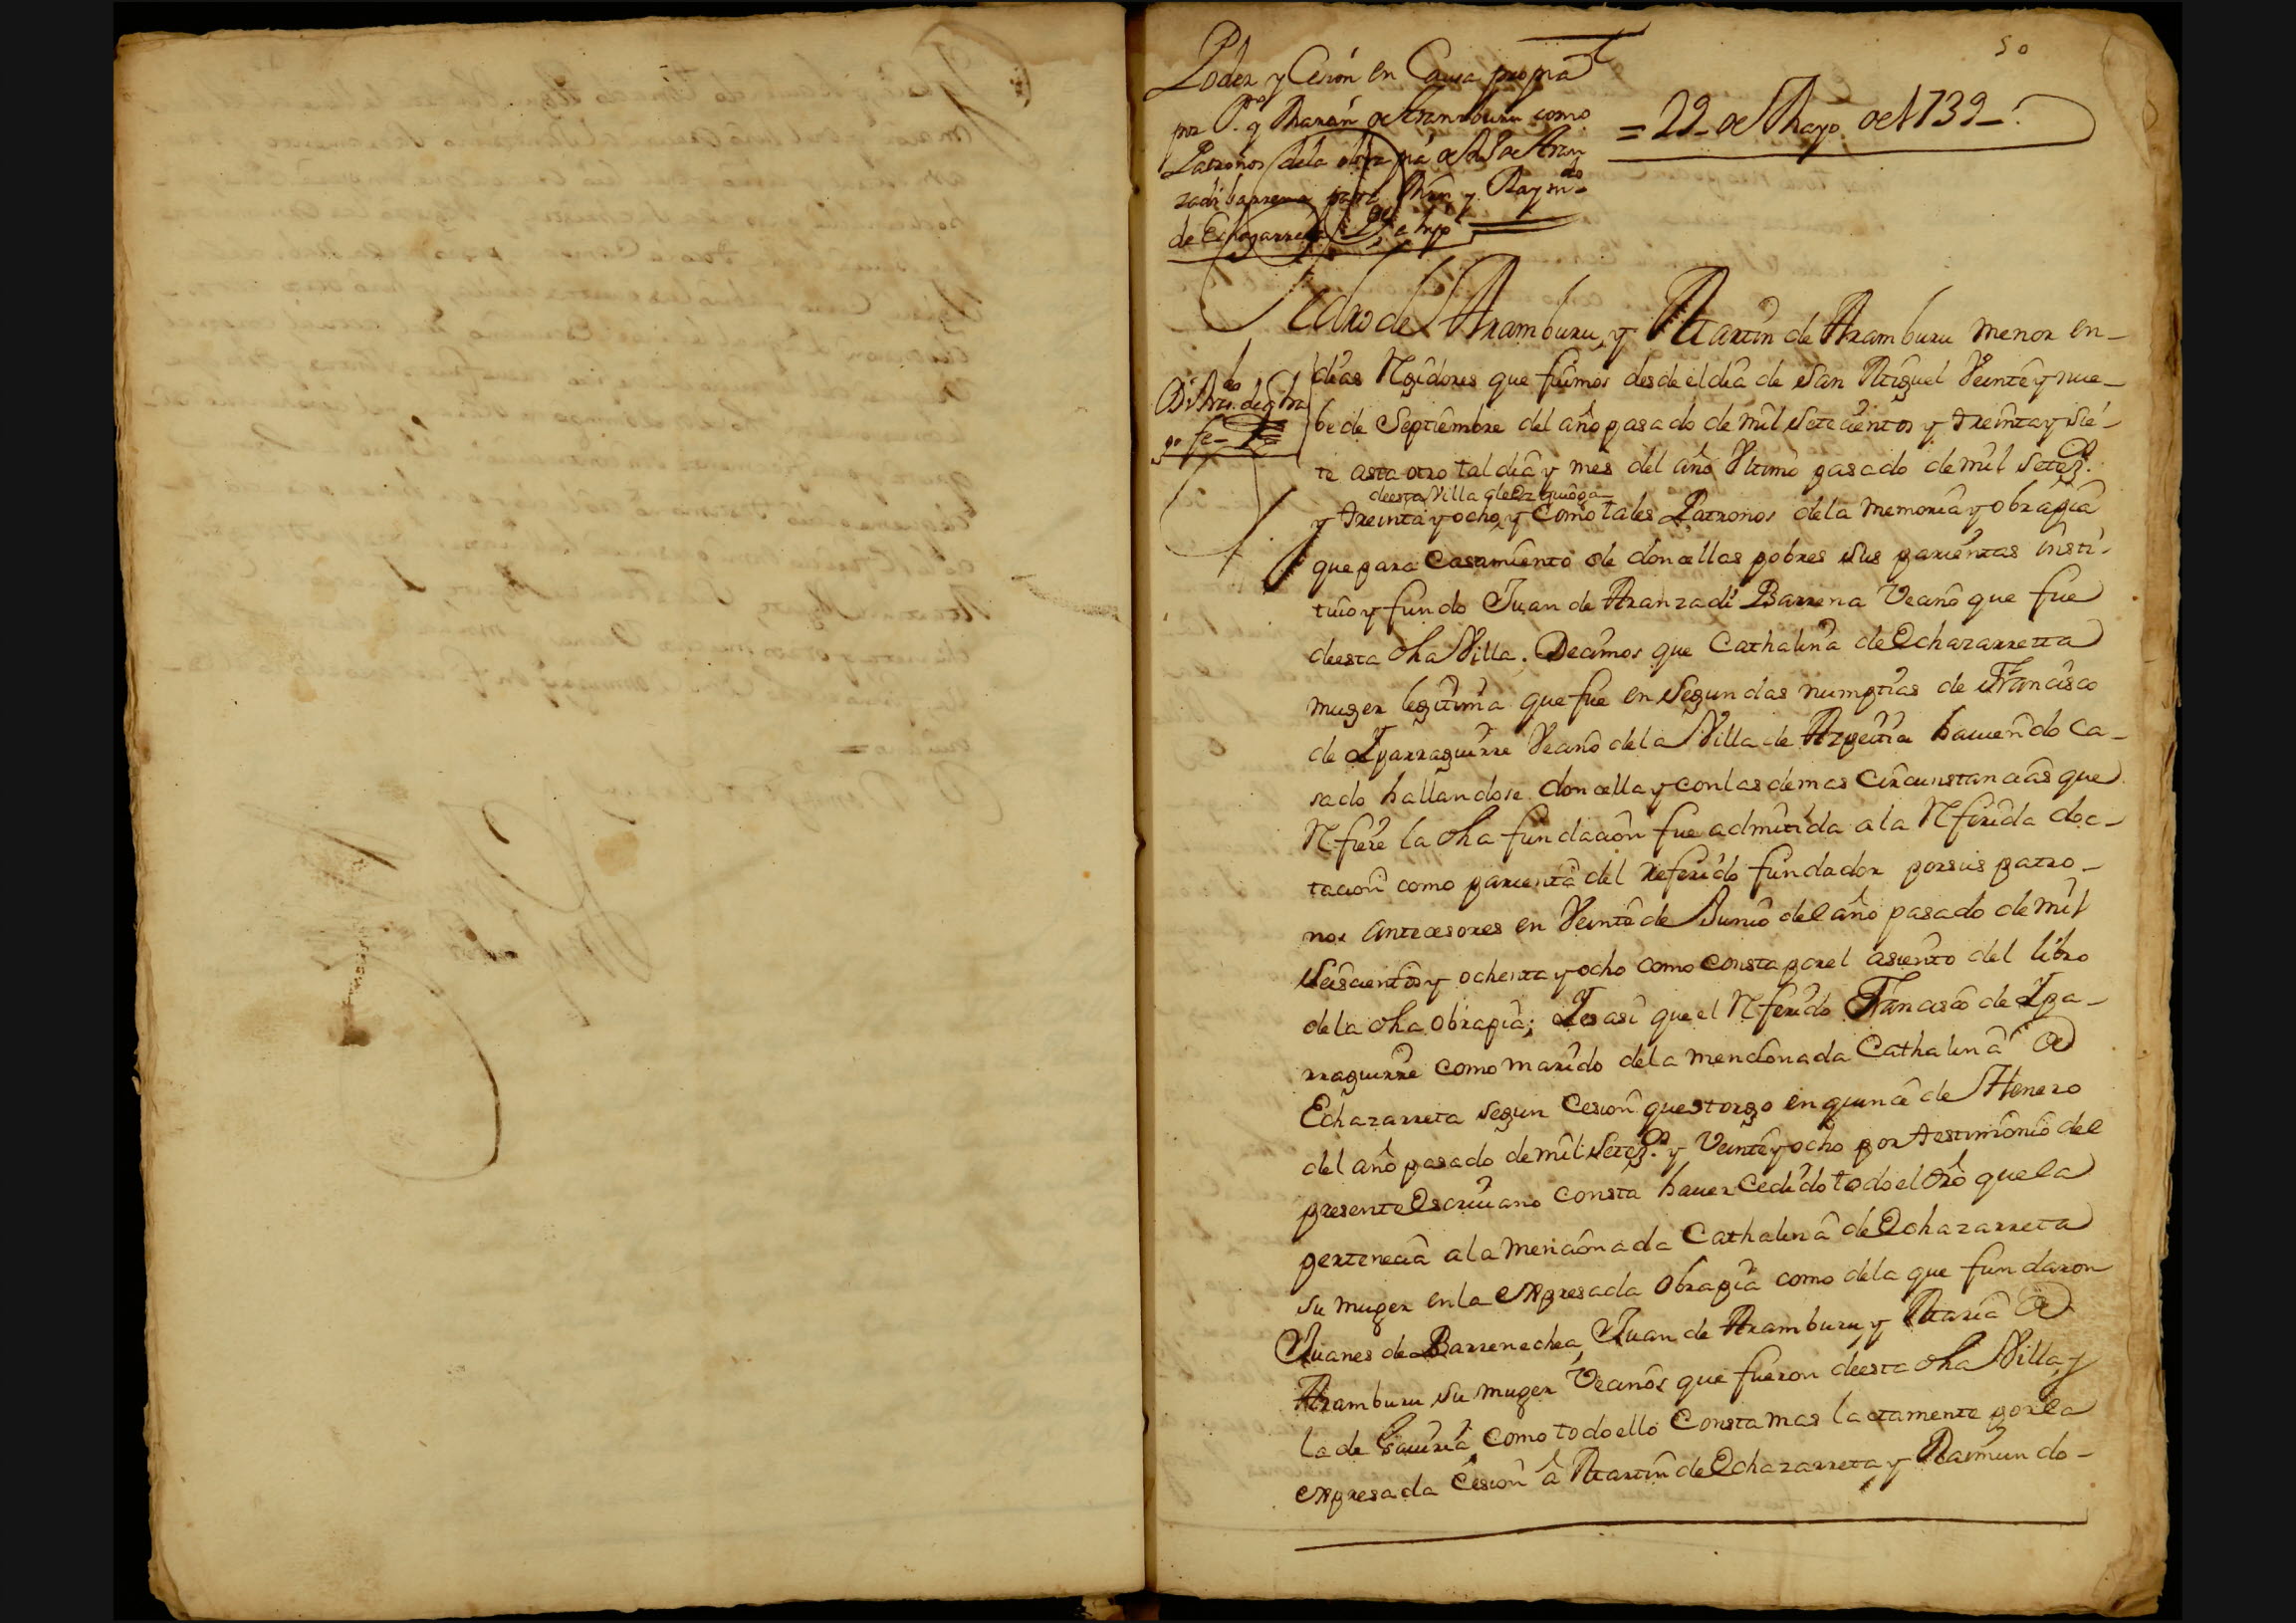 50
Poder y Cesión en Causa propia
por P.º y Martín de Aramburu como
Patronos de la obra pía de Jn de Aran
zadi barrena para Mrn y Raymdo
de Echazarreta
= 29 de Mayo de 1739 =
Pedro de Aramburu, y Martin de Aramburu menor en
dias Regidores que fuimos desde el dia de San Miguel Veinte y nue-
be de Septiembre del año pasado de mil Setecientos y treinta y sie-
te asta otro tal dia y mes del año Ultimo pasado de mil Setez.s
deesta Villa de Ezquioga
y treinta y ocho, y Como tales Patronos de la memoria y obrapia
que para Casamiento de doncellas pobres sus parientas insti-
tuio y fundo Juan de Aranzadi Barrena Vecino que fue
deesta dha Villa. Decimos que Cathalina de Echazarretta
muger legitima que fue en Segundas numptias de Francisco
de Yparraguirre Vecino de la Villa de Azpeitia haviendo Ca-
sado hallandose doncella y con las demas Circunstancias que
Refiere la dha fundacion fue admitida a la Referida doc-
tacion como parienta del referido fundador por sus patro-
nos antecesores en Veinte de Junio del año pasado de mil
Seiscientos y ochenta y ocho como Consta por el asiento del libro
de la dha Obrapia; Y es asi que el Referido Francisco de Ypa-
rraguirre como marido de la mencionada Cathalina de
Echazarreta segun Cesion que otorgo en quince de Henero
del año pasado de mil Setez.s y Veinte y ocho por testimonio del
presente Escrivano Consta haver Cedido todo el dro que la
pertenecia a la mencionada Cathalina de Echazarreta
su muger en la expresada Obrapia como de la que fundaron
Juanes de Barrenechea, Juan de Aramburu, y Maria de
Aramburu su muger Vecinos que fueron deesta dha Villa, y
la de Gaviria, Como todo ello Consta mas lactamente por la
expresada Cesion â Martin de Echazarreta y Raimundo-